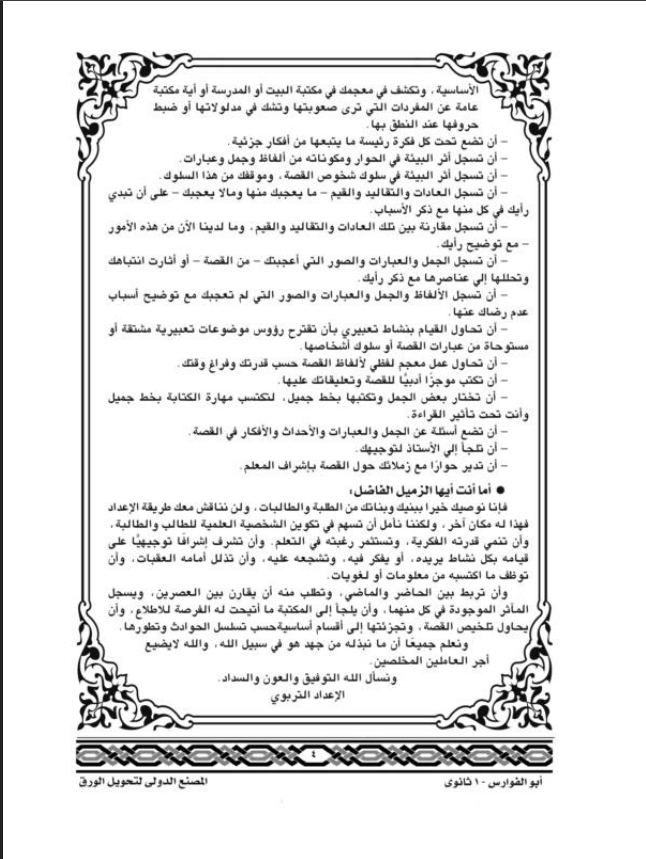 الأساسية ، وتكشف في معجمك في مكتبة البيت أو المدرسة أو أية مكتبة
عامة عن المفردات التي ترى صعوبتها وتشك في مدلولاتها أو ضبط
حروفها عند النطق بها .
– أن تضع تحت كل فكرة رئيسة ما يتبعها من أفكار جزئية .
– أن تسجل أثر البيئة في الحوار ومكوناته من ألفاظ وجمل وعبارات .
– أن تسجل أثر البيئة في سلوك شخوص القصة ، وموقفك من هذا السلوك .
– أن تسجل العادات والتقاليد والقيم – ما يعجبك منها ومالا يعجبك – على أن تبدي
رأيك في كل منها مع ذكر الأسباب .
– أن تسجل مقارنة بين تلك العادات والتقاليد والقيم ، وما لدينا الآن من هذه الأمور
– مع توضيح رأيك .
– أن تسجل الجمل والعبارات والصور التي أعجبتك – من القصة – أو أثارت انتباهك
وتحللها إلي عناصرها مع ذكر رأيك .
– أن تسجل الألفاظ والجمل والعبارات والصور التي لم تعجبك مع توضيح أسباب
عدم رضاك عنها .
– أن تحاول القيام بنشاط تعبيري بأن تقترح رؤوس موضوعات تعبيرية مشتقة أو
مستوحاة من عبارات القصة أو سلوك أشخاصها .
– أن تحاول عمل معجم لفظي لألفاظ القصة حسب قدرتك وفراغ وقتك .
– أن تكتب موجزًا أدبيًا للقصة وتعليقاتك عليها .
– أن تختار بعض الجمل وتكتبها بخط جميل ، لتكتسب مهارة الكتابة بخط جميل
وأنت تحت تأثير القراءة .
– أن تضع أسئلة عن الجمل والعبارات والأحداث والأفكار في القصة .
– أن تلجأ إلي الأستاذ لتوجيهك .
– أن تدير حوارًا مع زملائك حول القصة بإشراف المعلم .
● أما أنت أيها الزميل الفاضل :
فإنا نوصيك خيرا ببنيك وبناتك من الطلبة والطالبات ، ولن نناقش معك طريقة الإعداد
فهذا له مكان آخر ، ولكننا نأمل أن تسهم في تكوين الشخصية العلمية للطالب والطالبة ،
وأن تنمي قدرته الفكرية ، وتستثمر رغبته في التعلم . وأن تشرف إشرافًا توجيهيًا على
قيامه بكل نشاط يريده ، أو يفكر فيه ، وتشجعه عليه ، وأن تذلل أمامه العقبات ، وأن
توظف ما اكتسبه من معلومات أو لغويات .
وأن تربط بين الحاضر والماضي ، وتطلب منه أن يقارن بين العصرين ، ويسجل
المآثر الموجودة في كل منهما ، وأن يلجأ إلى المكتبة ما أتيحت له الفرصة للاطلاع ، وأن
يحاول تلخيص القصة ، وتجزئتها إلى أقسام أساسيةحسب تسلسل الحوادث وتطورها .
ونعلم جميعًا أن ما نبذله من جهد هو في سبيل الله ، والله لايضيع
أجر العاملين المخلصين .
ونسأل الله التوفيق والعون والسداد .
الإعداد التربوي
٤
أبو الفوارس - ١ ثانوى
المصنع الدولى لتحويل الورق